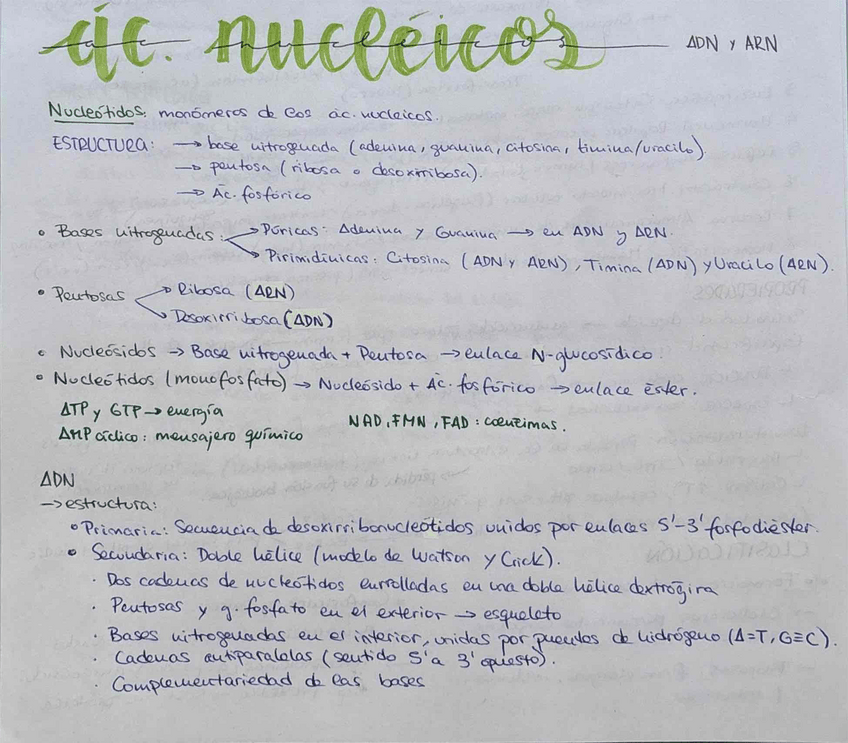 ác. nucléicos ADN y ARN
Nucleótidos: monómeros de los ác. nucleicos.
ESTRUCTURA: → base nitrogenada (adenina, guanina, citosina, timina/uracilo)
→ pentosa (ribosa o desoxirribosa).
→ Ác. fosfórico
• Bases nitrogenadas: → Púricas: Adenina y Guanina → en ADN y ARN.
→ Pirimidínicas: Citosina (ADN y ARN), Timina (ADN) y Uracilo (ARN).
• Pentosas → Ribosa (ARN)
→ Desoxirribosa (ADN)
• Nucleósidos → Base nitrogenada + Pentosa → enlace N-glucosídico
• Nucleótidos (monofosfato) → Nucleósido + Ác. fosfórico → enlace éster.
ATP y GTP → energía
NAD, FMN, FAD: coenzimas.
AMP cíclico: mensajero químico
ADN
→ estructura:
• Primaria: Secuencia de desoxirribonucleótidos unidos por enlaces 5'-3' fosfodiéster.
• Secundaria: Doble hélice (modelo de Watson y Crick).
· Dos cadenas de nucleótidos enrolladas en una doble hélice dextrógira
· Pentosas y g. fosfato en el exterior → esqueleto
· Bases nitrogenadas en el interior, unidas por puentes de hidrógeno (A=T, G≡C).
· Cadenas antiparalelas (sentido 5' a 3' opuesto).
· Complementariedad de las bases